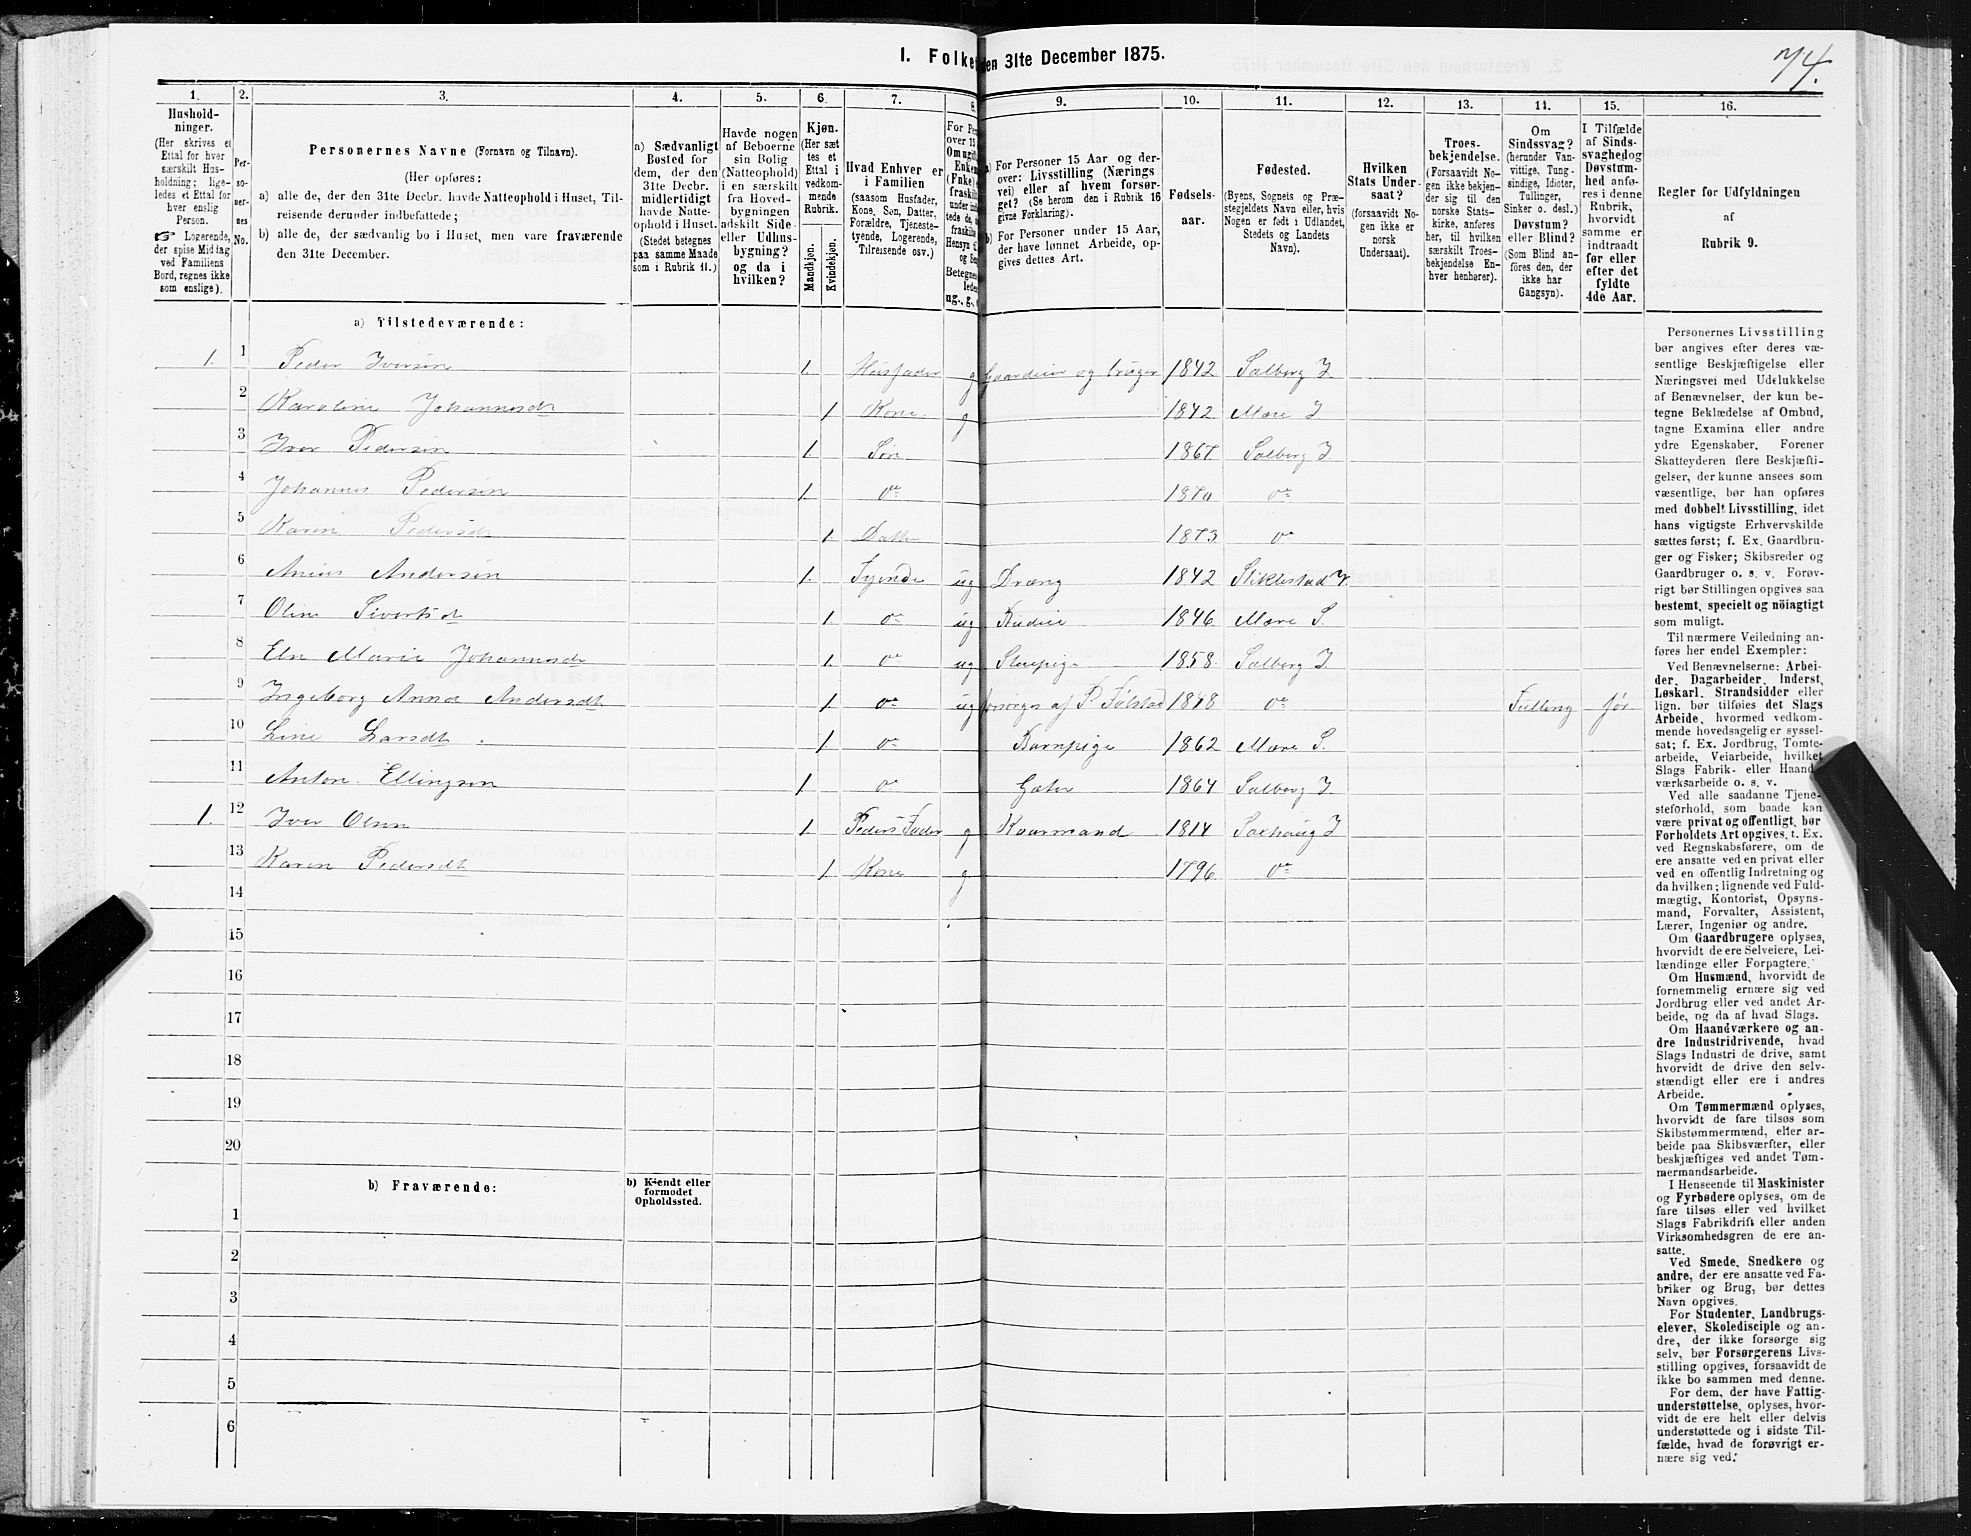 74.
1. Folke den 31te December 1875.
1. 2. 3. 4. 5. 6. 7. 8. 9. 10. 11. 12. 13. 14. 15. 16.
Hushold-
ninger.
(Her skrives et
Ettal for hver
særskilt Hus-
holdning; lige-
ledes et Ettal for
hver enslig
Person.
☞ Logerende,
der spise Middag
ved Familiens
Bord, regnes ikke
som enslige).
Per-
so-
ner-
nes
No.
Personernes Navne (Fornavn og Tilnavn).
(Her opføres:
a) alle de, der den 31te Decbr. havde Natteophold i Huset, Til-
reisende derunder indbefattede;
b) alle de, der sædvanlig bo i Huset, men vare fraværende
den 31te December.
a) Sædvanligt
Bosted for
dem, der den
31te Decbr.
midlertidigt
havde Natte-
ophold i Huset.
(Stedet betegnes
paa samme Maade
som i Rubrik 11.)
Havde nogen
af Beboerne
sin Bolig
(Natteophold)
i en særskilt
fra Hoved-
bygningen
adskilt Side-
eller Udhus-
bygning?
og da i
hvilken?
Kjøn.
(Her sæt-
tes et
Ettal i
vedkom-
mende
Rubrik.
Mandkjøn.
Kvindekjøn.
Hvad Enhver er
i Familien
(saasom Husfader,
Kone, Søn, Datter,
Forældre, Tjeneste-
tyende, Logerende,
Tilreisende osv.)
For Per
over 15
Om ugift
Enken
(Fnke)
fraskilt
under ind
tede de,
fraskilte
Hensyn t
og Sen
Betegnes
ledes
ug., g.,
a) For Personer 15 Aar og der-
over: Livsstilling (Nærings
vei) eller af hvem forsør-
get? (Se herom den i Rubrik 16
givne Forklaring).
b) For Personer under 15 Aar,
der have lønnet Arbeide, op-
gives dettes Art.
Fødsels-
aar.
Fødested.
(Byens, Sognets og Præ-
stegjeldets Navn eller, hvis
Nogen er født i Udlandet,
Stedets og Landets
Navn).
Hvilken
Stats Under-
saat?
(forsaavidt No-
gen ikke er
norsk
Undersaat).
Troes-
bekjendelse.
(Forsaavidt No-
gen ikke bekjen-
der sig til den
norske Stats-
kirke, anføres
her, til hvilken
særskilt Troes-
bekjendelse En-
hver henhører).
Om
Sindssvag?
(herunder Van-
vittige, Tung-
sindige, Idioter,
Tullinger,
Sinker o. desl.)
Døvstum?
eller Blind?
(Som Blind an-
føres den, der
ikke har
Gangsyn).
I Tilfælde
af Sinds-
svaghedog
Døvstum-
hed anfø-
res i denne
Rubrik,
hvorvidt
samme er
indtraadt
før eller
efter det
fyldte
4de Aar.
Regler for Udfyldningen
af
Rubrik 9.
a) Tilstedeværende:
1. 1 Peder Iversen 1. Husfader g Gaardeier og bruger 1842 Salberg I
2 Karoline Johannesdt 1 Kone g 1842 Mære I
3 Iver Pedersen 1. Søn 1867 Salberg I
4 Johannes Pedersen 1 do 1870 do
5 Karen Pedersdt 1. Datter 1873 do
6 Anius Andersen 1. Tyende ug Dræng 1842 Stiklestad V.
7 Oline Sivertsdt 1. do ug Budeie 1846 Mære S.
8 Eln Marie Johannesdt 1. do ug Stuepige 1858 Salberg I
9 Ingeborg Anna Andersdt 1. do ug forsørges af P. Følstad 1848 do Tulling før
10 Line Larsdt 1 do Barnpige 1862 Mære S.
11 Anton Ellingsen 1 do Gæter 1864 Salberg I
1. 12 Iver Olsen 1 Peders Fader g Kaarmand 1814 Saxhaug I
13 Karen Pedersdt 1. Kone g 1796 do
14
15
16
17
18
19
20
b) Fraværende:
b) Kjendt eller
formodet
Opholdssted.
1
2
3
4
5
6
Personernes Livsstilling
bør angives efter deres væ-
sentlige Beskjæftigelse eller
Næringsvei med Udelukkelse
af Benævnelser, der kun be-
tegne Beklædelse af Ombud,
tagne Examina eller andre
ydre Egenskaber. Forener
Skatteyderen flere Beskjæfti-
gelser, der kunne ansees som
væsentlige, bør han opføres
med dobbelt Livsstilling, idet
hans vigtigste Erhvervskilde
sættes først; f. Ex. Gaardbru-
ger og Fisker; Skibsreder og
Gaardbruger o. s. v. Forøv-
rigt bør Stillingen opgives saa
bestemt, specielt og nöiagtigt
som muligt.
Til nærmere Veiledning an-
føres her endel Exempler:
Ved Benævnelserne: Arbei-
der, Dagarbeider, Inderst,
Løskarl, Strandsidder eller
lign. bør tilføies det Slags
Arbeide, hvormed vedkom-
mende hovedsagelig er syssel-
sat; f. Ex. Jordbrug, Tomte-
arbeide, Veiarbeide, hvilket
Slags Fabrik- eller Haand-
værksarbeide o. s. v.
Ved alle saadanne Tjene-
steforhold, som baade kan
være privat og offentligt, bør
Forholdets Art opgives, t. Ex.
ved Regnskabsførere, om de
ere ansatte ved en privat eller
ved en offentlig Indretning og
da hvilken; lignende ved Fuld-
mægtig, Kontorist, Opsyns-
mand, Forvalter, Assistent,
Lærer, Ingeniør og andre.
Om Gaardbrugere oplyses,
hvorvidt de ere Selveiere, Lei-
lændinge eller Forpagtere.
Om Husmænd, hvorvidt de
fornemmelig ernære sig ved
Jordbrug eller ved andet Ar-
beide, og da af hvad Slags.
Om Haandværkere og an-
dre Industridrivende, hvad
Slags Industri de drive, samt
hvorvidt de drive den selv-
stændigt eller ere i andres
Arbeide.
Om Tømmermænd oplyses,
hvorvidt de fare tilsøs som
Skibstømmermænd, eller ar-
beide paa Skibsværfter, eller
beskjæftiges ved andet Tøm-
mermandsarbeide.
I Henseende til Maskinister
og Fyrbødere oplyses, om de
fare tilsøs eller ved hvilket
Slags Fabrikdrift eller anden
Virksomhedsgren de ere an-
satte.
Ved Smede, Snedkere og
andre, der ere ansatte ved Fa-
briker og Brug, bør dettes
Navn opgives.
For Studenter, Landbrugs-
elever, Skoledisciple og an-
dre, der ikke forsørge sig
selv, bør Forsørgerens Livs-
stilling opgives, forsaavidt de
ikke bo sammen med denne.
For dem, der have Fattig-
understøttelse, oplyses, hvor-
vidt de ere helt eller delvis
understøttede og i sidste Til-
fælde, hvad de forøvrigt er-
nære sig ved.